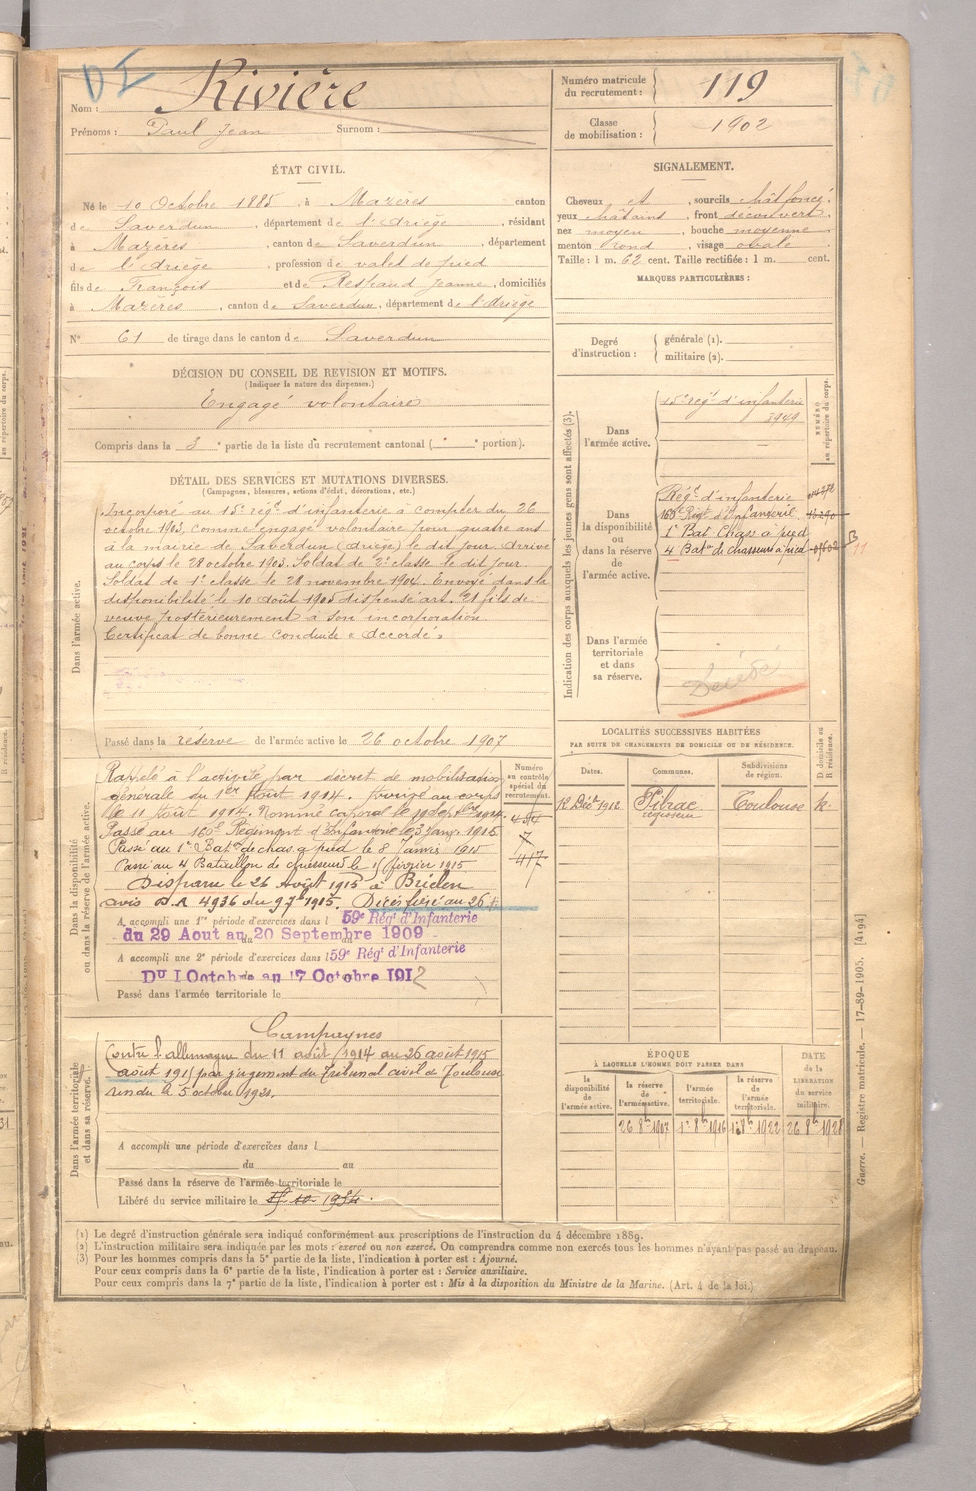 DI
Nom : Rivière
Prénoms : Paul Jean Surnom :
Numéro matricule du recrutement : 119
Classe de mobilisation : 1902
ÉTAT CIVIL.
Né le 10 Octobre 1885, à Mazères canton
de Saverdun, département de l'Ariège, résidant
à Mazères, canton de Saverdun, département
de l'Ariège, profession de valet de pied
fils de François et de Respaud Jeanne, domiciliés
à Mazères, canton de Saverdun, département de l'Ariège
N° 61 de tirage dans le canton de Saverdun
SIGNALEMENT.
Cheveux et, sourcils chât foncé.
yeux châtains, front découvert,
nez moyen, bouche moyenne
menton rond, visage ovale
Taille : 1 m. 62 cent. Taille rectifiée : 1 m. cent.
MARQUES PARTICULIÈRES :
Degré d'instruction : générale (1).
militaire (2).
DÉCISION DU CONSEIL DE REVISION ET MOTIFS.
(Indiquer la nature des dispenses.)
Engagé volontaire
Compris dans la 3e partie de la liste du recrutement cantonal ( e portion).
DÉTAIL DES SERVICES ET MUTATIONS DIVERSES.
(Campagnes, blessures, actions d'éclat, décorations, etc.)
Dans l'armée active.
Incorporé au 15e régt d'infanterie à compter du 26
octobre 1903, comme engagé volontaire pour quatre ans
à la mairie de Saverdun (Ariège) le dit jour. Arrivé
au corps le 28 octobre 1903. Soldat de 2e classe le dit jour.
Soldat de 1e classe le 28 novembre 1904. Envoyé dans la
disponibilité le 10 août 1905 dispensé art. 21 fils de
veuve postérieurement à son incorporation.
Certificat de bonne conduite « Accordé »
Passé dans la réserve de l'armée active le 26 octobre 1907
Indication des corps auxquels les jeunes gens sont affectés (3).
NUMÉRO au répertoire du corps.
Dans l'armée active.
15e régt d'infanterie
3949
Dans la disponibilité ou dans la réserve de l'armée active.
Régt d'infanterie
160e Régt d'Infanterie
1e Bat Chas à pied
4 Baton de chasseurs à pied
Dans l'armée territoriale et dans sa réserve.
Décédé
Dans la disponibilité ou dans la réserve de l'armée active.
Numéro au contrôle spécial du recrutement.
Rappelé à l'activité par décret de mobilisation
générale du 1er Août 1914. Arrivé au corps
le 11 Août 1914. Nommé caporal le 19 Septbre 1914.
Passé au 160e Régiment d'Infanterie le 3 Janvr 1915
Passé au 1e Baton de chas. à pied le 8 Janvier 1915
Passé au 4 Bataillon de chasseurs le 15 février 1915
Disparu le 26 Août 1915 à Briclen
avis D.A 4936 du 9 7bre 1915. Décès fixé au 26
A accompli une 1re période d'exercices dans l 59e Régt d'Infanterie
du 29 Aout au 20 Septembre 1909
A accompli une 2e période d'exercices dans l 59e Régt d'Infanterie
Du 1 Octobre au 17 Octobre 1912
Passé dans l'armée territoriale le
LOCALITÉS SUCCESSIVES HABITÉES
PAR SUITE DE CHANGEMENTS DE DOMICILE OU DE RÉSIDENCE.
Dates. Communes. Subdivisions de région. D domicile ou R résidence.
12 Déc. 1912 Pibrac Toulouse R.
régisseur
Dans l'armée territoriale et dans sa réserve.
Campagnes
Contre l'allemagne du 11 août 1914 au 26 août 1915
août 1915 par jugement du Tribunal civil de Toulouse
rendu le 5 octobre 1921.
A accompli une période d'exercices dans l
du au
Passé dans la réserve de l'armée territoriale le
Libéré du service militaire le
ÉPOQUE
À LAQUELLE L'HOMME DOIT PASSER DANS
la disponibilité de l'armée active. la réserve de l'armée active. l'armée territoriale. la réserve de l'armée territoriale.
DATE DE LA LIBÉRATION du service militaire.
26 8bre 1907 1e 8bre 1916 1e 8bre 1922 26 8bre 1928
(1) Le degré d'instruction générale sera indiqué conformément aux prescriptions de l'instruction du 4 décembre 1889.
(2) L'instruction militaire sera indiquée par les mots : exercé ou non exercé. On comprendra comme non exercés tous les hommes n'ayant pas passé au drapeau.
(3) Pour les hommes compris dans la 5e partie de la liste, l'indication à porter est : Ajourné.
Pour ceux compris dans la 6e partie de la liste, l'indication à porter est : Service auxiliaire.
Pour ceux compris dans la 7e partie de la liste, l'indication à porter est : Mis à la disposition du Ministre de la Marine. (Art. 4 de la loi.)
Guerre. — Registre matricule. — 17-89-1905. [4194]